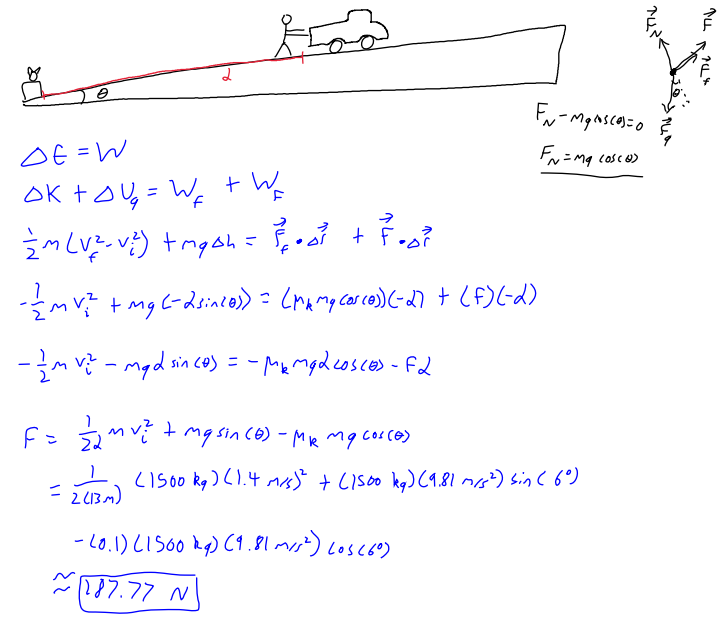 d
θ
F⃗_N F⃗
F⃗_f
θ
F⃗_g
F_N - mg cos(θ) = 0
F_N = mg cos(θ)
ΔE = W
ΔK + ΔU_g = W_f + W_F
1/2 m (v_f² - v_i²) + mgΔh = F⃗_f • Δr⃗ + F⃗ • Δr⃗
-1/2 m v_i² + mg (-d sin(θ)) = (μ_k mg cos(θ))(-d) + (F)(-d)
-1/2 m v_i² - mgd sin(θ) = -μ_k mgd cos(θ) - Fd
F = 1/2d m v_i² + mg sin(θ) - μ_k mg cos(θ)
= 1/2(13 m) (1500 kg)(1.4 m/s)² + (1500 kg)(9.81 m/s²) sin(6°)
-(0.1)(1500 kg)(9.81 m/s²) cos(6°)
≈ 187.77 N